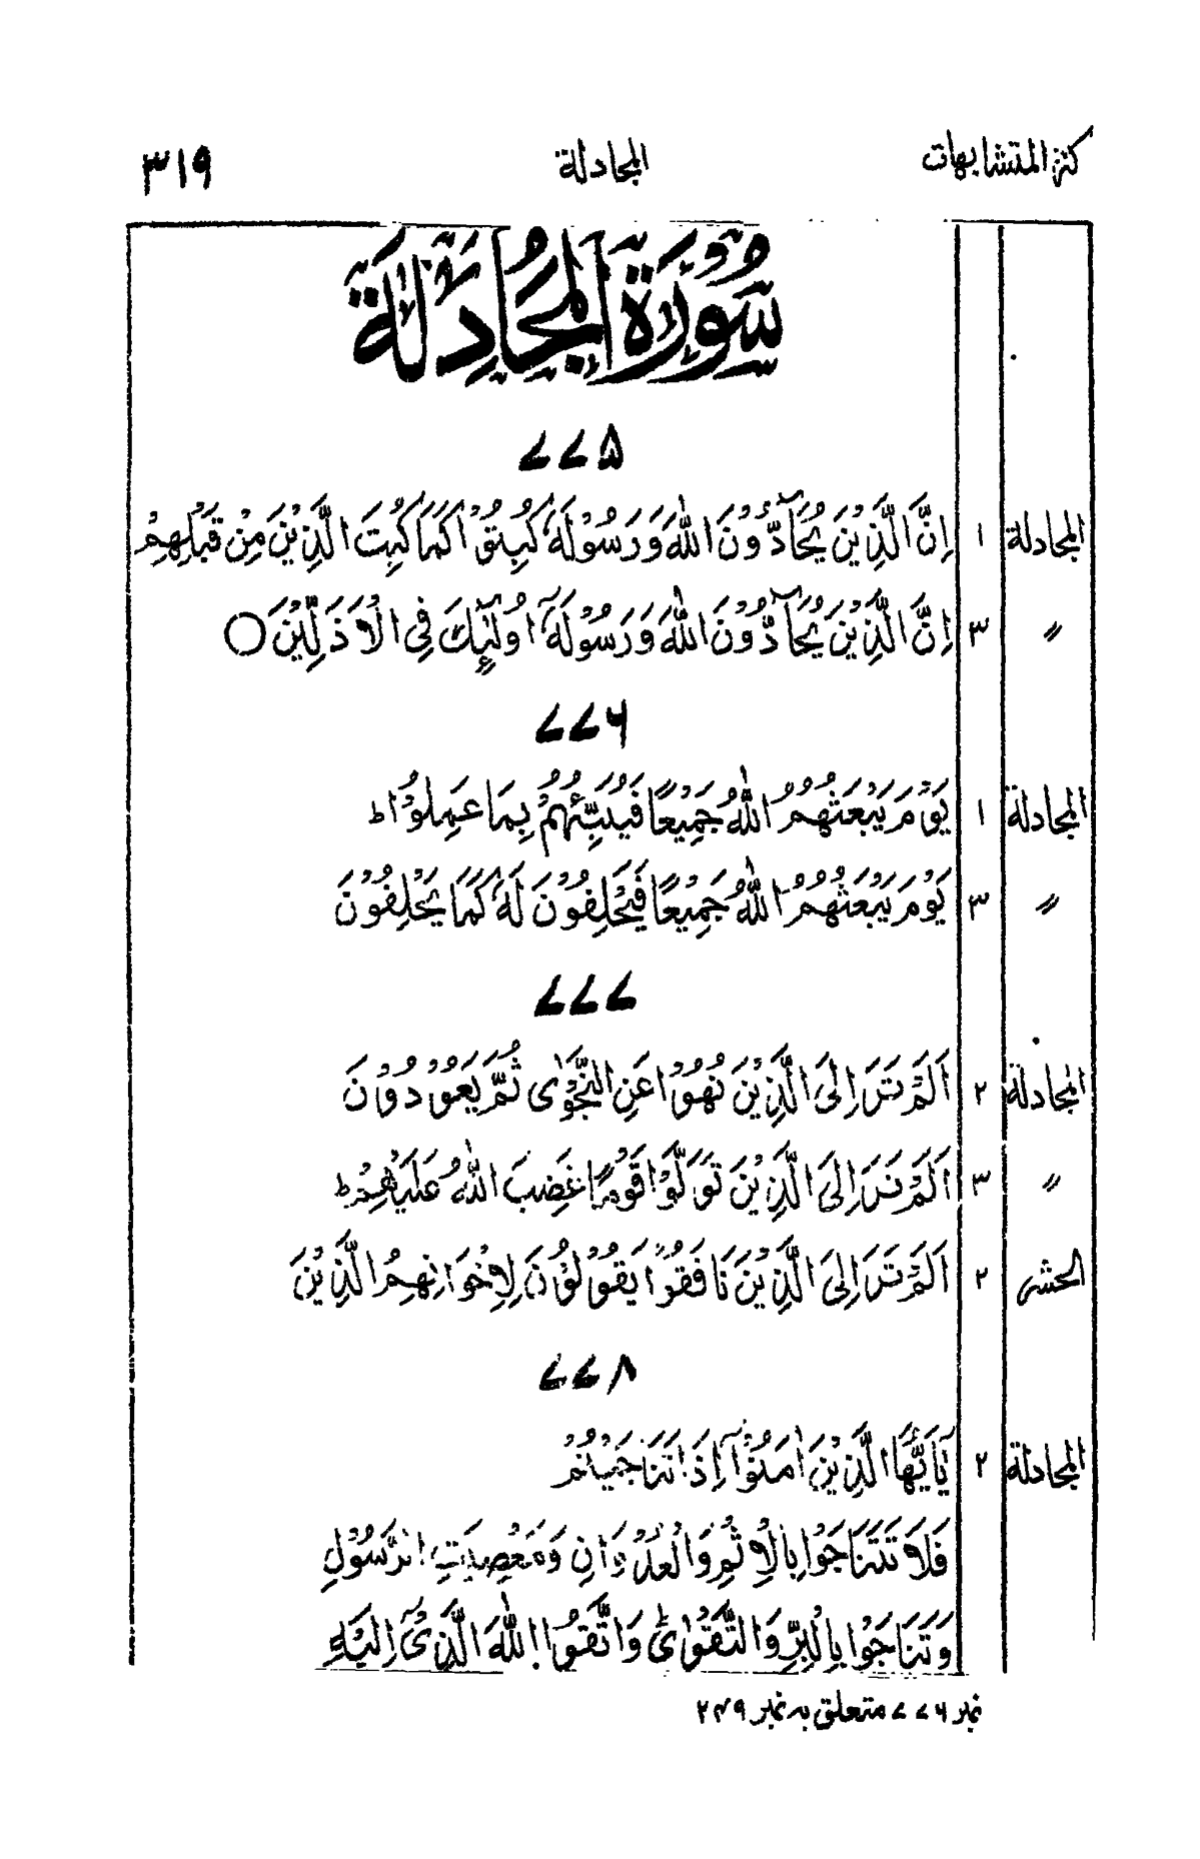 كنز المتشابهات المجادلة ۳۱۹
سُوْرَةُ الْمُجَادِلَةِ
۷۷۵
المجادلة ۱ اِنَّ الَّذِيْنَ يُحَآدُّوْنَ اللّٰهَ وَرَسُوْلَهٗ كُبِتُوْا كَمَا كُبِتَ الَّذِيْنَ مِنْ قَبْلِهِمْ
〃 ۳ اِنَّ الَّذِيْنَ يُحَآدُّوْنَ اللّٰهَ وَرَسُوْلَهٗٓ اُولٰٓئِكَ فِى الْاَذَلِّيْنَ ○
۷۷۶
المجادلة ۱ يَوْمَ يَبْعَثُهُمُ اللّٰهُ جَمِيْعًا فَيُنَبِّئُهُمْ بِمَا عَمِلُوْا ط
〃 ۳ يَوْمَ يَبْعَثُهُمُ اللّٰهُ جَمِيْعًا فَيَحْلِفُوْنَ لَهٗ كَمَا يَحْلِفُوْنَ
۷۷۷
المجادلة ۲ اَلَمْ تَرَ اِلَى الَّذِيْنَ نُهُوْا عَنِ النَّجْوٰى ثُمَّ يَعُوْدُوْنَ
〃 ۳ اَلَمْ تَرَ اِلَى الَّذِيْنَ تَوَلَّوْا قَوْمًا غَضِبَ اللّٰهُ عَلَيْهِمْ ط
الحشر ۲ اَلَمْ تَرَ اِلَى الَّذِيْنَ نَافَقُوْا يَقُوْلُوْنَ لِاِخْوَانِهِمُ الَّذِيْنَ
۷۷۸
المجادلة ۲ يٰٓاَيُّهَا الَّذِيْنَ اٰمَنُوْٓا اِذَا تَنَاجَيْتُمْ
فَلَا تَتَنَاجَوْا بِالْاِثْمِ وَالْعُدْوَانِ وَمَعْصِيَتِ الرَّسُوْلِ
وَتَنَاجَوْا بِالْبِرِّ وَالتَّقْوٰى وَاتَّقُوا اللّٰهَ الَّذِىْٓ اِلَيْهِ
نمبر ۷۷۶ متعلق به نمبر ۲۴۹